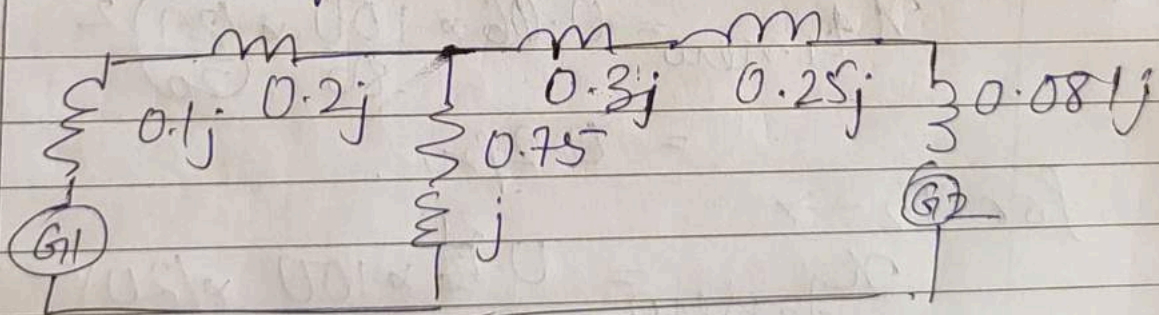 0.1j 0.2j 0.3j 0.25j 0.081j
0.75
G1 j G2